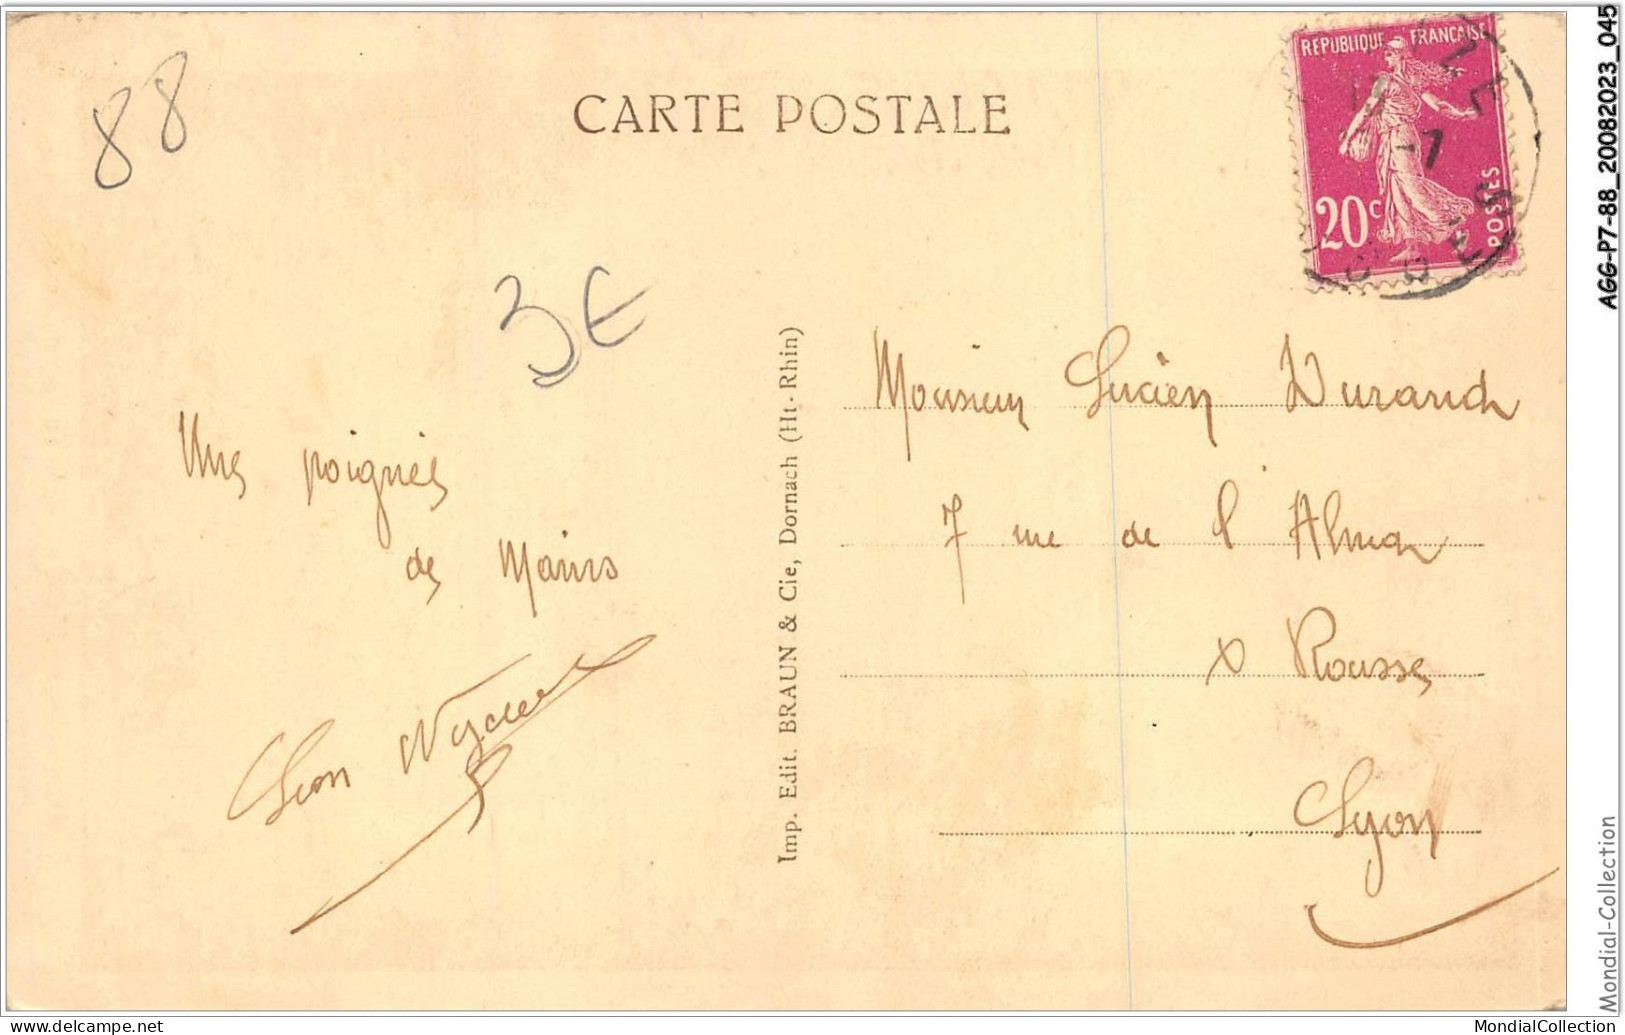 88
CARTE POSTALE
REPUBLIQUE FRANÇAISE
20c
POSTES
3€
Monsieur Lucien Durand
7 rue de l'Alma
x Rousse
Lyon
Une poignée
de Mains
Léon
Imp. Edit. BRAUN & Cie, Dornach (Ht-Rhin)
AGG-P7-88_20082023_045
Mondial-Collection
www.delcampe.net
MondialCollection